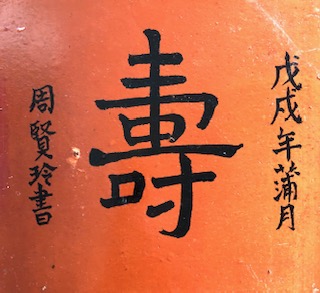 戊戌年蒲月
壽
周賢玲書